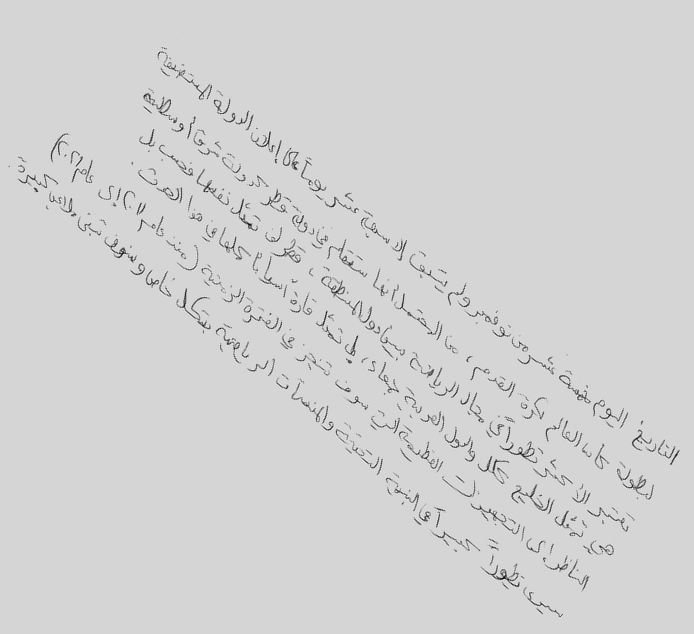 التاريخ اليوم خمسة عشر من نوفمبر ولم يتبق إلا سبعة عشر يوماً على إعلان الدولة المستضيفة
لبطولة كأس العالم لكرة القدم ، من المحتمل أنها ستقام في دولة قطر كدولة شرق أوسطية
تعتبر الأكثر تطوراً في مجال الرياضة بين دول المنطقة ، قطر لن تمثل نفسها فحسب بل
هي تمثل الخليج ككل والدول العربية جمعاء ، بل تمثل قارة آسيا بأكملها في هذا الحدث .
الناظر إلى التجهيزات العظيمة التي سوف تنجز في الفترة الزمنية (منذ عام ٢٠١١ إلى عام ٢٠٢١)
سيرى تطوراً كبيراً في البنية التحتية والمنشآت الرياضية بشكل خاص وسوف تبنى ملاعب كبيرة .